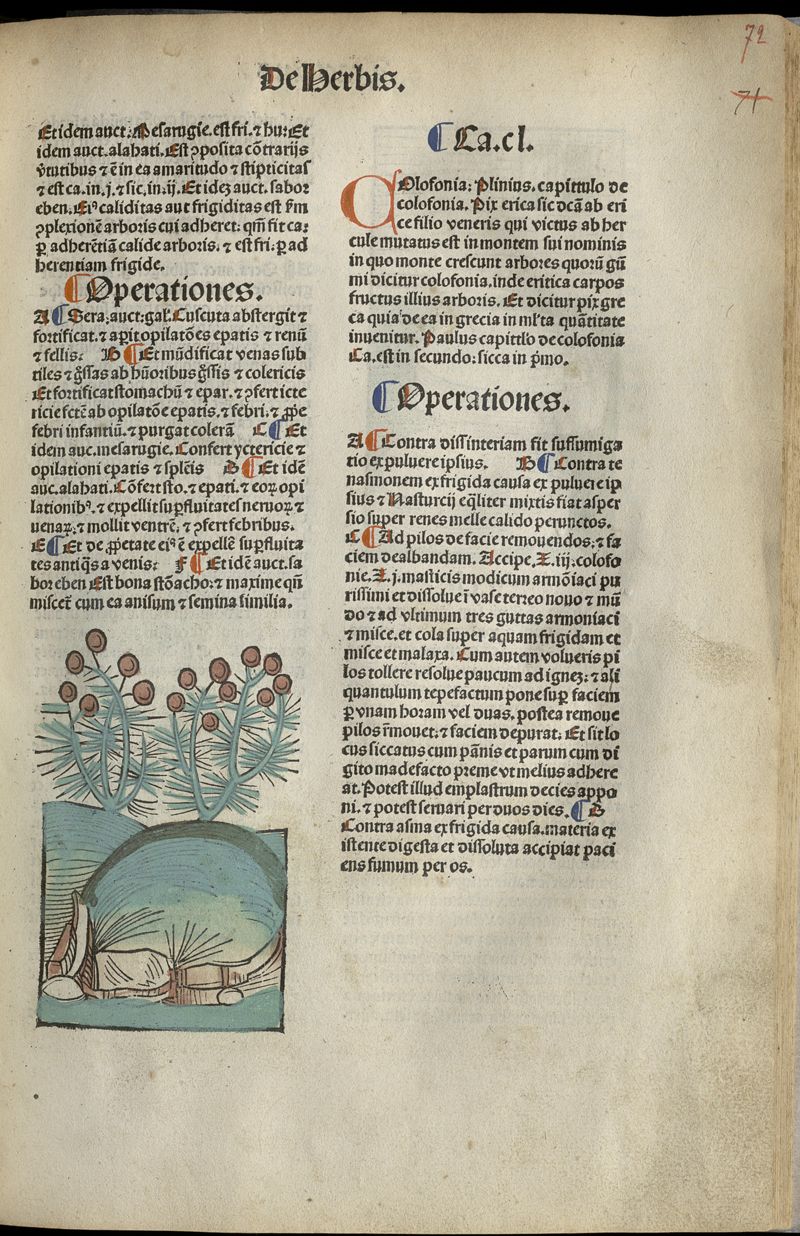 72
71
De Herbis.
Et idem auct: Mesarugie. est fri. ⁊ hu: Et
idem auct. alahati. Est ꝯposita cōtrarijs
v̓tutibus ⁊ ē in ea amaritudo ⁊ stipticitas
⁊ est ca. in. j. ⁊ sic. in. ij. Et idez auct. sabor
eben. Eiꝰ caliditas aut frigiditas est ẜm
ꝯplexionē arboris cui adheret: qm̄ fit ca:
ꝑ adherētiā calide arboris. ⁊ est fri: ꝑ ad
herentiam frigide.
Operationes.
A Sera: auct: gal: Cuscuta abstergit ⁊
fortificat. ⁊ aꝑit opilatōes epatis ⁊ renū
⁊ fellis: B Et mūdificat venas sub
tiles ⁊ g̊ssas ab hūoribus g̊ssis ⁊ colericis
Et fortificat stomachū ⁊ epar. ⁊ ꝯfert icte
ricie fctē ab opilatōe epatis. ⁊ febri: ⁊ ꝓpe
febri infantiū. ⁊ purgat colerā C Et
idem auc. mesarugie. Confert yctericie ⁊
opilationi epatis ⁊ splēis D Et idē
auc. alahati. Cōfert sto. ⁊ epati. ⁊ eoꝝ opi
lationibꝰ. ⁊ expellit suꝑfluitates neruoꝝ ⁊
uenaꝝ: ⁊ mollit ventrē. ⁊ ꝯfert febribus.
E Et de ꝓpetate eiꝰ ē expellē suꝑfluita
tes antiq̄s a venis: F Et idē auct. sa
bor eben Est bona stōacho: ⁊ maxime qn̄
miscet̄ cum ea anisum ⁊ semina similia.
Ca. cl.
COlofonia: Plinius. capittulo de
colofonia. Pix erica sic dc̄a ab eri
ce filio veneris qui victus ab her
cule mutatus est in montem sui nominis
in quo monte crescunt arbores quorū gū
mi dicitur colofonia. inde eritica carpos
fructus illius arboris. Et dicitur pix gre
ca quia de ea in grecia in ml̓ta quātitate
inuenitur. Paulus capittl̓o de colofonia
Ca. est in secundo: sicca in p̓mo.
Operationes.
A Contra dissinteriam fit suffumiga
tio ex puluere ipsius. B Contra te
nasmonem ex frigida causa ex puluere ip
sius ⁊ Nasturcij eq̄liter mixtis fiat asper
sio super renes melle calido perunctos.
C Ad pilos de facie remouendos: ⁊ fa
ciem dealbandam. Accipe. ℥. iij. colofo
nie. ℥. j. masticis modicum armōiaci pu
rissimi et dissolue ī vase terreo nouo ⁊ mū
do ⁊ ad vltimum tres guttas armoniaci
⁊ misce. et cola super aquam frigidam et
misce et malaxa. Cum autem volueris pi
los tollere resolue paucum ad ignez: ⁊ ali
quantulum tepefactum pone suꝑ faciem
ꝑ vnam horam vel duas. postea remoue
pilos r̄mouet: ⁊ faciem depurat: Et sit lo
cus siccatus cum pānis et parum cum di
gito madefacto preme vt melius adhere
at. Potest illud emplastrum decies appo
ni. ⁊ potest seruari per duos dies. D
Contra asma ex frigida causa. materia ex
istente digesta et dissoluta accipiat paci
ens fumum per os.